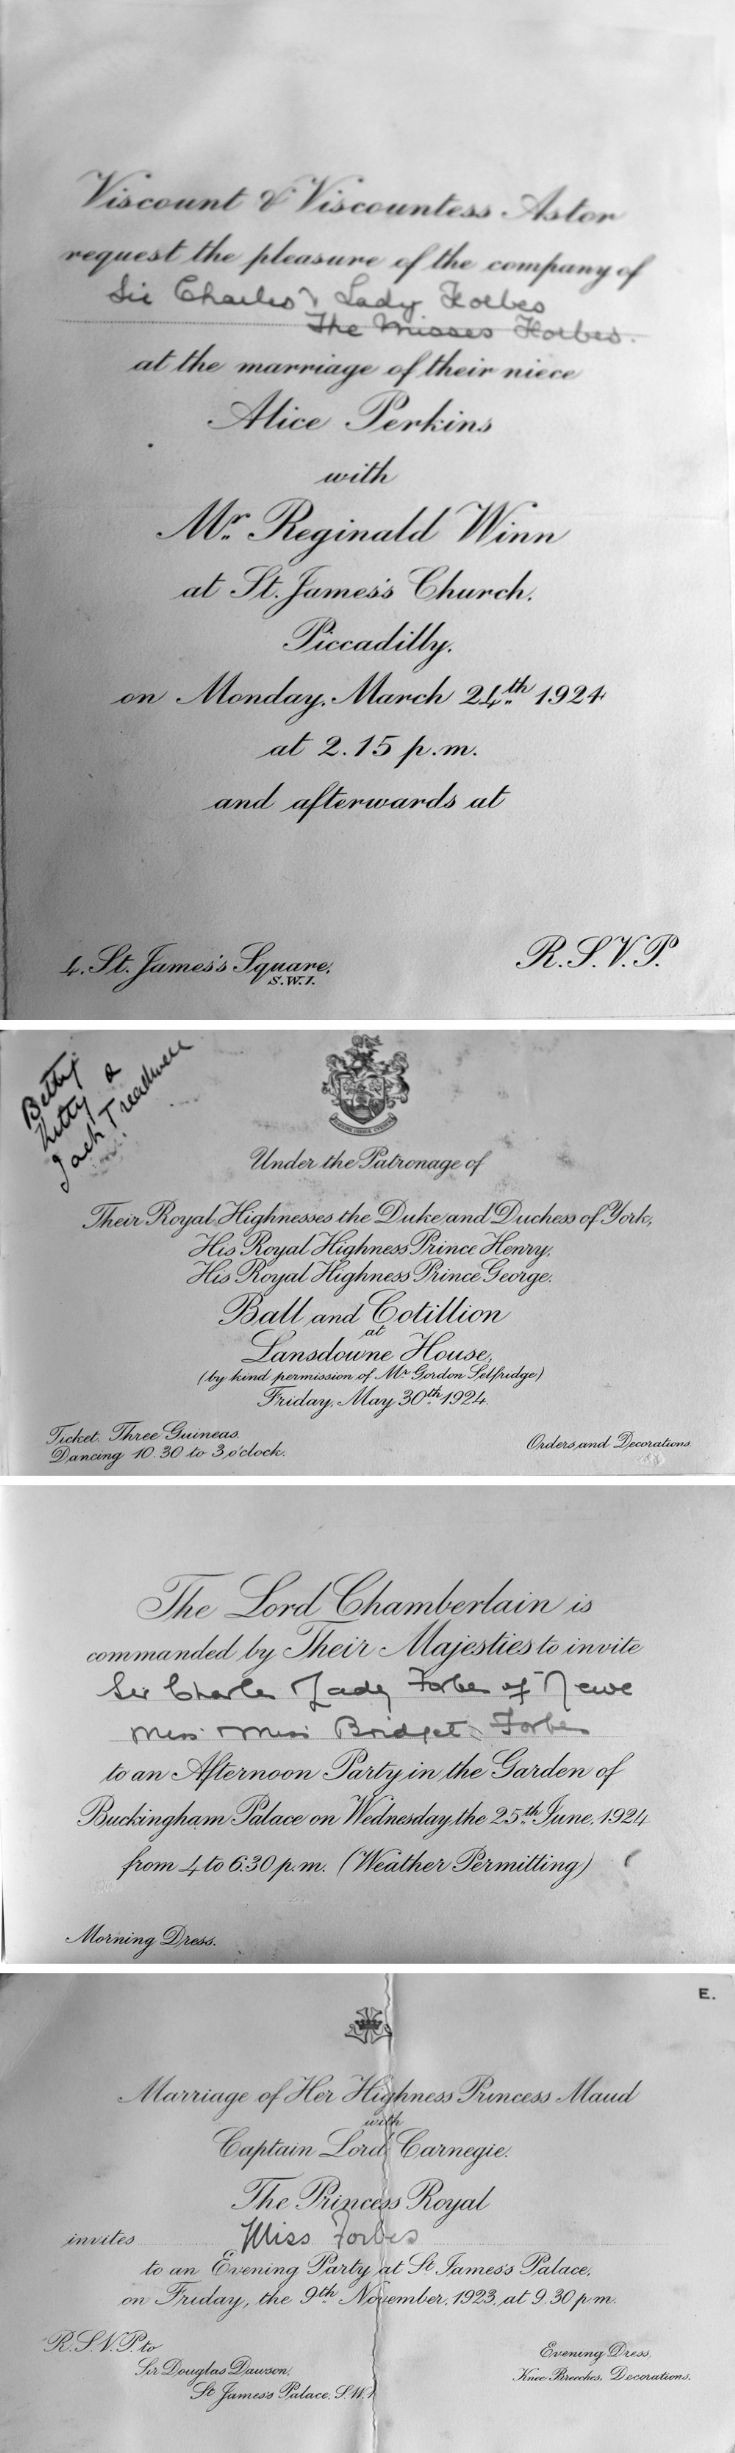 Viscount & Viscountess Astor
request the pleasure of the company of
Sir Charles & Lady Forbes
The Misses Forbes.
at the marriage of their niece
Alice Perkins
with
Mr. Reginald Winn
at St. James's Church,
Piccadilly,
on Monday, March 24th 1924
at 2.15 p.m.
and afterwards at
4, St. James's Square,
S.W.1.
R.S.V.P.
Betty
Kitty &
Jack Treadwell
Under the Patronage of
Their Royal Highnesses the Duke and Duchess of York,
His Royal Highness Prince Henry,
His Royal Highness Prince George.
Ball and Cotillion
at
Lansdowne House,
(by kind permission of Mr Gordon Selfridge)
Friday, May 30th 1924.
Ticket. Three Guineas.
Dancing 10.30 to 3 o'clock.
Orders and Decorations.
The Lord Chamberlain is
commanded by Their Majesties to invite
Sir Charles & Lady Forbes of Newe
Miss & Miss Bridget Forbes
to an Afternoon Party in the Garden of
Buckingham Palace on Wednesday the 25th June, 1924
from 4 to 6.30 p.m. (Weather Permitting)
Morning Dress.
E.
Marriage of Her Highness Princess Maud
with
Captain Lord Carnegie.
The Princess Royal
invites Miss Forbes
to an Evening Party at St James's Palace,
on Friday, the 9th November, 1923, at 9.30 p.m.
R.S.V.P. to
Sir Douglas Dawson,
St James's Palace, S.W.1
Evening Dress,
Knee Breeches, Decorations.